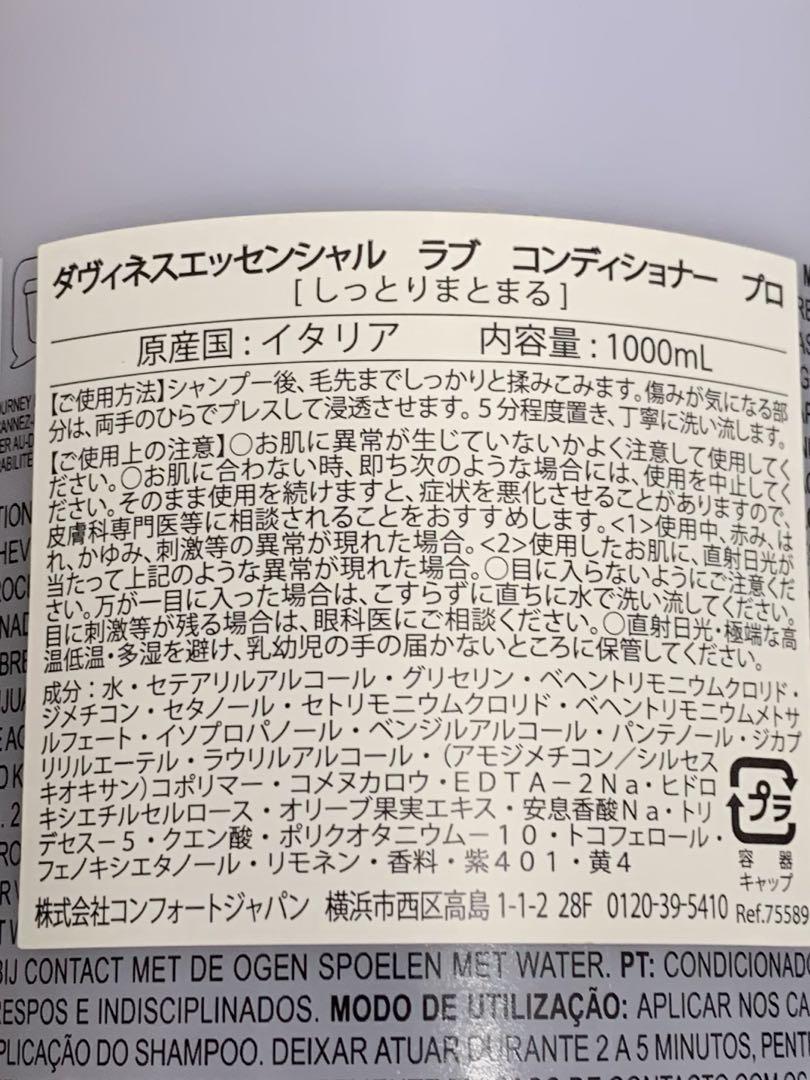 ダヴィネスエッセンシャル ラブ コンディショナー プロ
[しっとりまとまる]
原産国：イタリア 内容量：1000mL
【ご使用方法】シャンプー後、毛先までしっかりと揉みこみます。傷みが気になる部
分は、両手のひらでプレスして浸透させます。5分程度置き、丁寧に洗い流します。
【ご使用上の注意】○お肌に異常が生じていないかよく注意して使用してく
ださい。○お肌に合わない時、即ち次のような場合には、使用を中止してく
ださい。そのまま使用を続けますと、症状を悪化させることがありますので、
皮膚科専門医等に相談されることをおすすめします。<1>使用中、赤み、は
れ、かゆみ、刺激等の異常が現れた場合。<2>使用したお肌に、直射日光が
当たって上記のような異常が現れた場合。○目に入らないようにご注意くだ
さい。万が一目に入った場合は、こすらずに直ちに水で洗い流してください。
目に刺激等が残る場合は、眼科医にご相談ください。○直射日光・極端な高
温低温・多湿を避け、乳幼児の手の届かないところに保管してください。
成分：水・セテアリルアルコール・グリセリン・ベヘントリモニウムクロリド・
ジメチコン・セタノール・セトリモニウムクロリド・ベヘントリモニウムメトサ
ルフェート・イソプロパノール・ベンジルアルコール・パンテノール・ジカプ
リリルエーテル・ラウリルアルコール・(アモジメチコン／シルセス
キオキサン)コポリマー・コメヌカロウ・EDTA－2Na・ヒドロ
キシエチルセルロース・オリーブ果実エキス・安息香酸Na・トリ
デセス－5・クエン酸・ポリクオタニウム－10・トコフェロール・
フェノキシエタノール・リモネン・香料・紫401・黄4
プラ
容器
キャップ
株式会社コンフォートジャパン 横浜市西区高島1-1-2 28F 0120-39-5410 Ref.75589
BIJ CONTACT MET DE OGEN SPOELEN MET WATER. PT: CONDICIONADO
RESPOS E INDISCIPLINADOS. MODO DE UTILIZAÇÃO: APLICAR NOS CA
PLICAÇÃO DO SHAMPOO. DEIXAR ATUAR DURANTE 2 A 5 MINUTOS, PENT